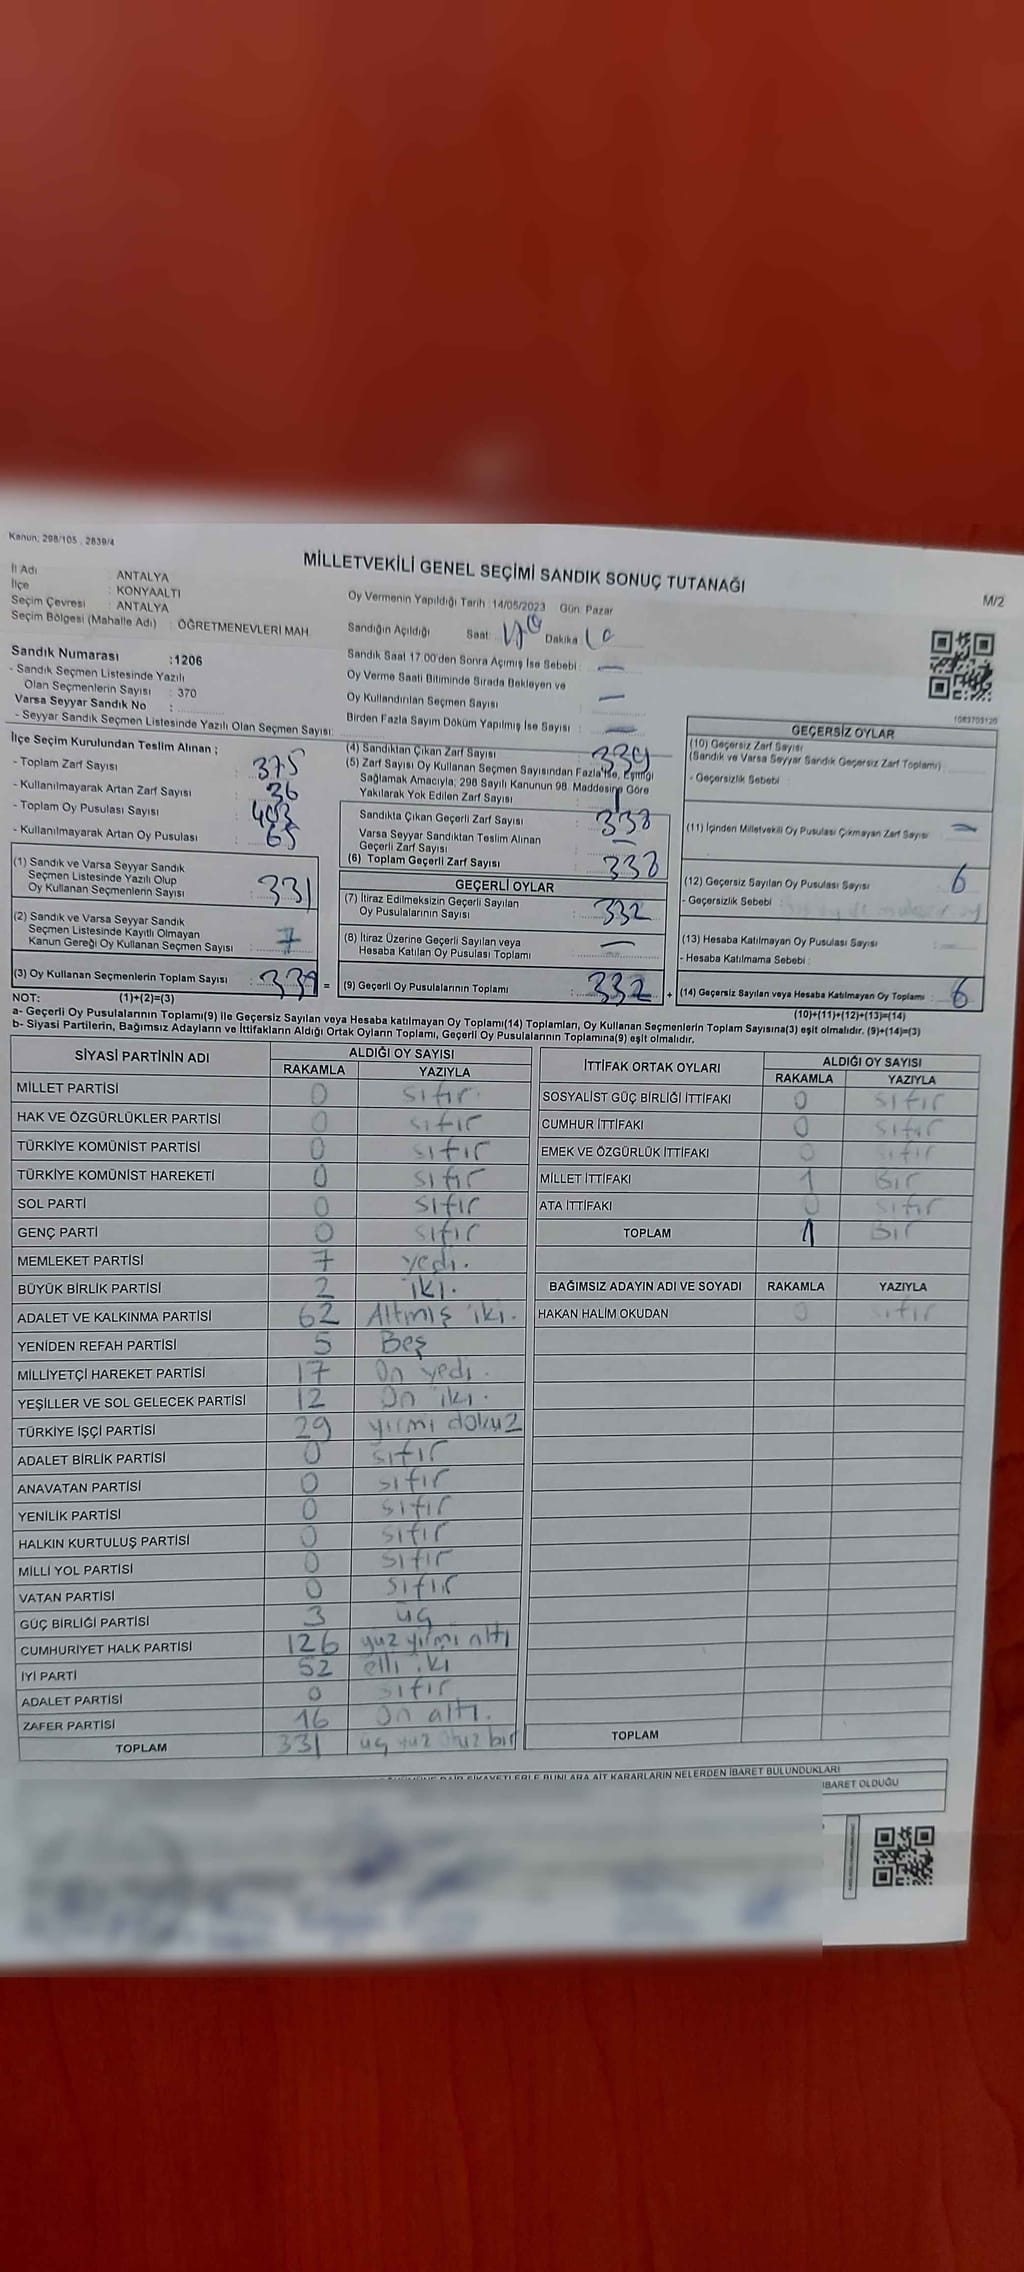 Kanun: 298/105 , 2839/4
MİLLETVEKİLİ GENEL SEÇİMİ SANDIK SONUÇ TUTANAĞI
M/2
İl Adı : ANTALYA
İlçe : KONYAALTI
Seçim Çevresi : ANTALYA
Seçim Bölgesi (Mahalle Adı) : ÖĞRETMENEVLERİ MAH.
Oy Vermenin Yapıldığı Tarih :14/05/2023 Gün: Pazar
Sandığın Açıldığı Saat: Dakika:
Sandık Numarası :1206
- Sandık Seçmen Listesinde Yazılı
Olan Seçmenlerin Sayısı : 370
Varsa Seyyar Sandık No :
- Seyyar Sandık Seçmen Listesinde Yazılı Olan Seçmen Sayısı:
Sandık Saat 17:00'den Sonra Açımış İse Sebebi : —
Oy Verme Saati Bitiminde Sırada Bekleyen ve
Oy Kullandırılan Seçmen Sayısı : —
Birden Fazla Sayım Döküm Yapılmış İse Sayısı : —
1083703120
İlçe Seçim Kurulundan Teslim Alınan ;
- Toplam Zarf Sayısı : 375
- Kullanılmayarak Artan Zarf Sayısı : 36
- Toplam Oy Pusulası Sayısı : 403
- Kullanılmayarak Artan Oy Pusulası : 65
(1) Sandık ve Varsa Seyyar Sandık
Seçmen Listesinde Yazılı Olup
Oy Kullanan Seçmenlerin Sayısı : 331
(2) Sandık ve Varsa Seyyar Sandık
Seçmen Listesinde Kayıtlı Olmayan
Kanun Gereği Oy Kullanan Seçmen Sayısı : 7
(3) Oy Kullanan Seçmenlerin Toplam Sayısı :
(4) Sandıktan Çıkan Zarf Sayısı : 339
(5) Zarf Sayısı Oy Kullanan Seçmen Sayısından Fazla İse, Eşitliği
Sağlamak Amacıyla; 298 Sayılı Kanunun 98. Maddesine Göre
Yakılarak Yok Edilen Zarf Sayısı : 1
Sandıkta Çıkan Geçerli Zarf Sayısı : 338
Varsa Seyyar Sandıktan Teslim Alınan
Geçerli Zarf Sayısı : —
(6) Toplam Geçerli Zarf Sayısı : 338
GEÇERLİ OYLAR
(7) İtiraz Edilmeksizin Geçerli Sayılan
Oy Pusulalarının Sayısı : 332
(8) İtiraz Üzerine Geçerli Sayılan veya
Hesaba Katılan Oy Pusulası Toplamı : —
= (9) Geçerli Oy Pusulalarının Toplamı : 332 +
GEÇERSİZ OYLAR
(10) Geçersiz Zarf Sayısı
(Sandık ve Varsa Seyyar Sandık Geçersiz Zarf Toplamı)
- Geçersizlik Sebebi :
(11) İçinden Milletvekili Oy Pusulası Çıkmayan Zarf Sayısı : —
(12) Geçersiz Sayılan Oy Pusulası Sayısı : 6
- Geçersizlik Sebebi :
(13) Hesaba Katılmayan Oy Pusulası Sayısı : —
- Hesaba Katılmama Sebebi :
(14) Geçersiz Sayılan veya Hesaba Katılmayan Oy Toplamı : 6
NOT: (1)+(2)=(3)
(10)+(11)+(12)+(13)=(14)
a- Geçerli Oy Pusulalarının Toplamı(9) ile Geçersiz Sayılan veya Hesaba katılmayan Oy Toplamı(14) Toplamları, Oy Kullanan Seçmenlerin Toplam Sayısına(3) eşit olmalıdır. (9)+(14)=(3)
b- Siyasi Partilerin, Bağımsız Adayların ve İttifakların Aldığı Ortak Oyların Toplamı, Geçerli Oy Pusulalarının Toplamına(9) eşit olmalıdır.
SİYASİ PARTİNİN ADI ALDIĞI OY SAYISI
RAKAMLA YAZIYLA
MİLLET PARTİSİ 0 sıfır
HAK VE ÖZGÜRLÜKLER PARTİSİ 0 sıfır
TÜRKİYE KOMÜNİST PARTİSİ 0 sıfır
TÜRKİYE KOMÜNİST HAREKETİ 0 sıfır
SOL PARTİ 0 sıfır
GENÇ PARTİ 0 sıfır
MEMLEKET PARTİSİ 7 yedi.
BÜYÜK BİRLİK PARTİSİ 2 iki.
ADALET VE KALKINMA PARTİSİ 62 Altmış iki.
YENİDEN REFAH PARTİSİ 5 Beş
MİLLİYETÇİ HAREKET PARTİSİ 17 On yedi.
YEŞİLLER VE SOL GELECEK PARTİSİ 12 On iki.
TÜRKİYE İŞÇİ PARTİSİ 29 yirmi dokuz
ADALET BİRLİK PARTİSİ 0 sıfır
ANAVATAN PARTİSİ 0 sıfır
YENİLİK PARTİSİ 0 sıfır
HALKIN KURTULUŞ PARTİSİ 0 sıfır
MİLLİ YOL PARTİSİ 0 sıfır
VATAN PARTİSİ 0 sıfır
GÜÇ BİRLİĞİ PARTİSİ 3 üç
CUMHURİYET HALK PARTİSİ 126 yüz yirmi altı
İYİ PARTİ 52 elli iki
ADALET PARTİSİ 0 sıfır
ZAFER PARTİSİ 16 On altı.
TOPLAM 331 üç yüz otuz bir
İTTİFAK ORTAK OYLARI ALDIĞI OY SAYISI
RAKAMLA YAZIYLA
SOSYALİST GÜÇ BİRLİĞİ İTTİFAKI 0 sıfır
CUMHUR İTTİFAKI 0 sıfır
EMEK VE ÖZGÜRLÜK İTTİFAKI 0 sıfır
MİLLET İTTİFAKI 1 Bir
ATA İTTİFAKI 0 sıfır
TOPLAM 1 Bir
BAĞIMSIZ ADAYIN ADI VE SOYADI RAKAMLA YAZIYLA
HAKAN HALİM OKUDAN 0 sıfır
TOPLAM
BUNLARA AİT KARARLARIN NELERDEN İBARET BULUNDUKLARI
İBARET OLDUĞU